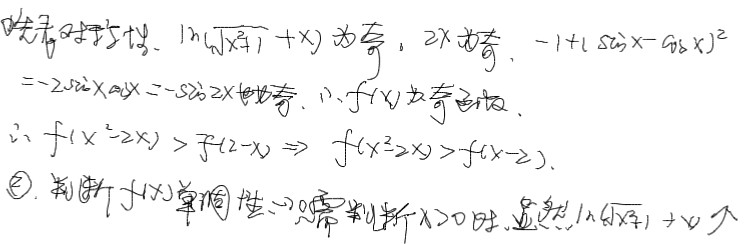 先看对称性、ln(√x²+1 + x)为奇。2x为奇、-1+(sinx-cosx)²
=-2sinxcosx=-sin2x也为奇、∴f(x)为奇函数、
∴f(x²-2x)>-f(2-x)⇒ f(x²-2x)>f(x-2).
②.判断f(x)单调性→只需判断x>0时、显然ln(√x²+1 + x)↑